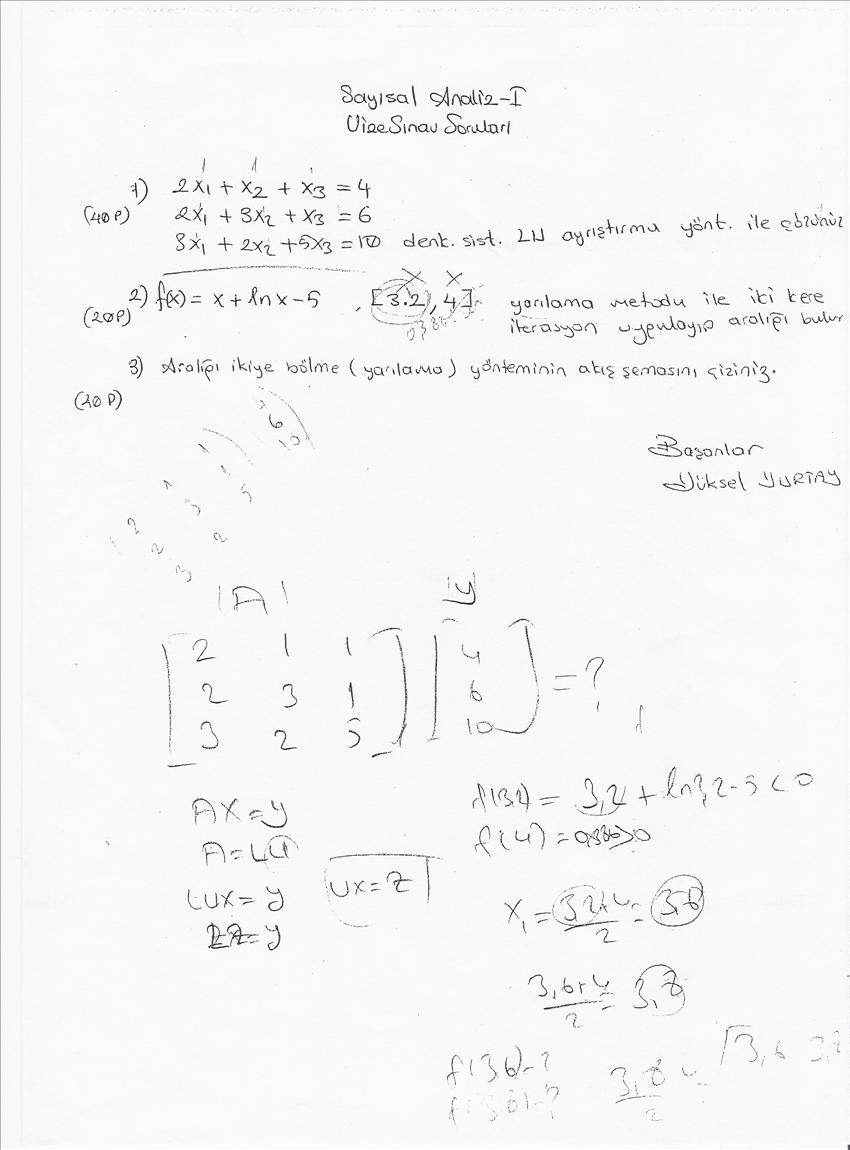 Sayısal Analiz-I
Vize Sınav Soruları
1) 2x₁ + x₂ + x₃ = 4
(40P) 2x₁ + 3x₂ + x₃ = 6
3x₁ + 2x₂ + 5x₃ = 10 denk. sist. LU ayrıştırma yönt. ile çözünüz
2) f(x) = x + ln x - 5 , [3.2, 4] yarılama metodu ile iki kere
(20P) iterasyon uygulayıp aralığı bulun
3) Aralığı ikiye bölme (yarılama) yönteminin akış şemasını çiziniz.
(20P)
6
10
1
1 1
3 5
2
2 2
3
Başarılar
Yüksel YURTAY
|A| y
2 1 1 4
2 3 1 6 = ?
3 2 5 10
AX = y
A = LU
LUX = y
UX = Z
LZ = y
f(3,2) = 3,2 + ln3,2 - 5 < 0
f(4) = 0,386 > 0
x₁ = 3,2+4 / 2 = 3,6
3,6+4 / 2 = 3,8
f(3,6) - ?
f(3,8) - ?
3,8 / 2
[3,6 3,8